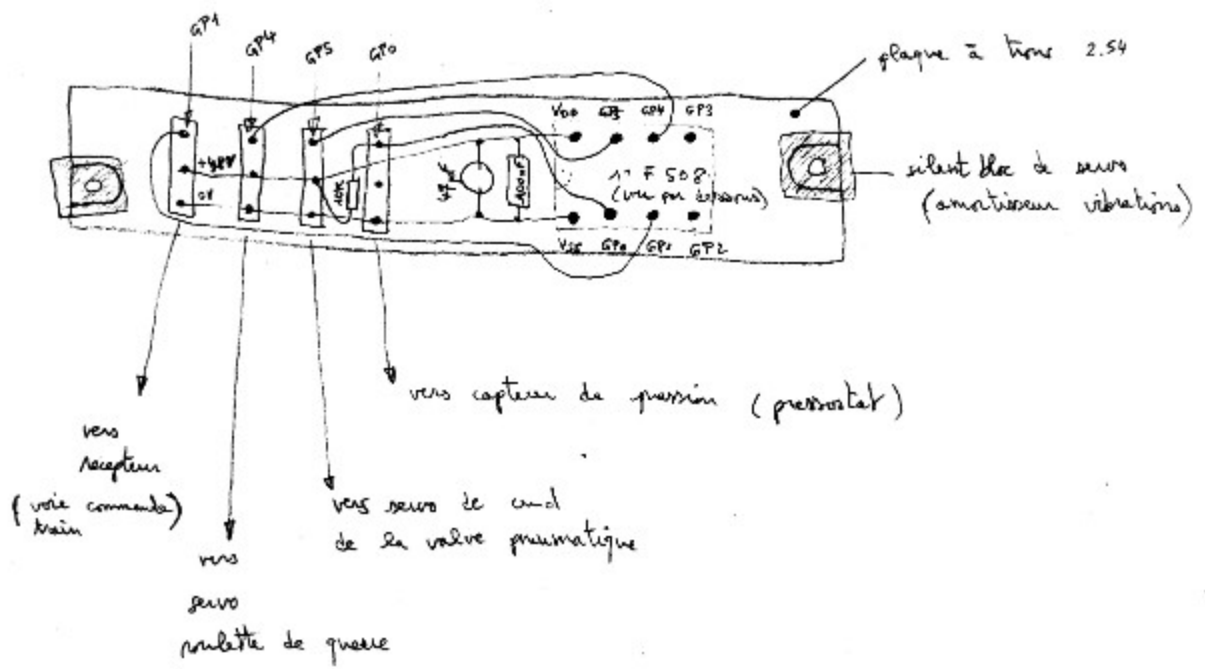 GP1
GP4
GP5
GP0
plaque à trous 2.54
VDD GP5 GP4 GP3
+4,8V
0V
10K
47µF
100nF
12F508
(vue par dessous)
VSS GP0 GP1 GP2
silent bloc de servo
(amortisseur vibrations)
vers capteur de pression (pressostat)
vers
récepteur
(voie commande)
train
vers servo de cmd
de la valve pneumatique
vers
servo
roulette de queue